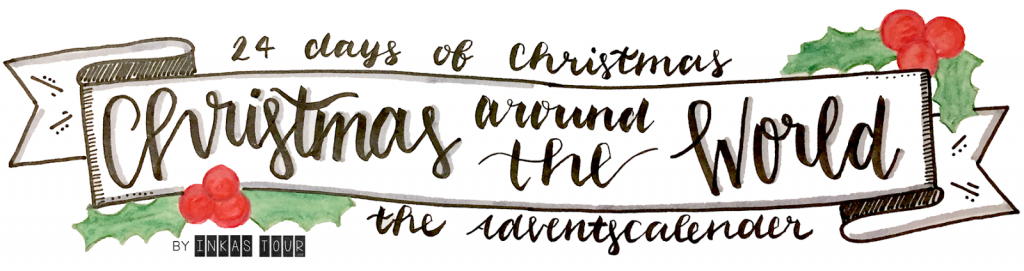 24 days of Christmas
Christmas around the World
the adventscalender
BY INKAS TOUR